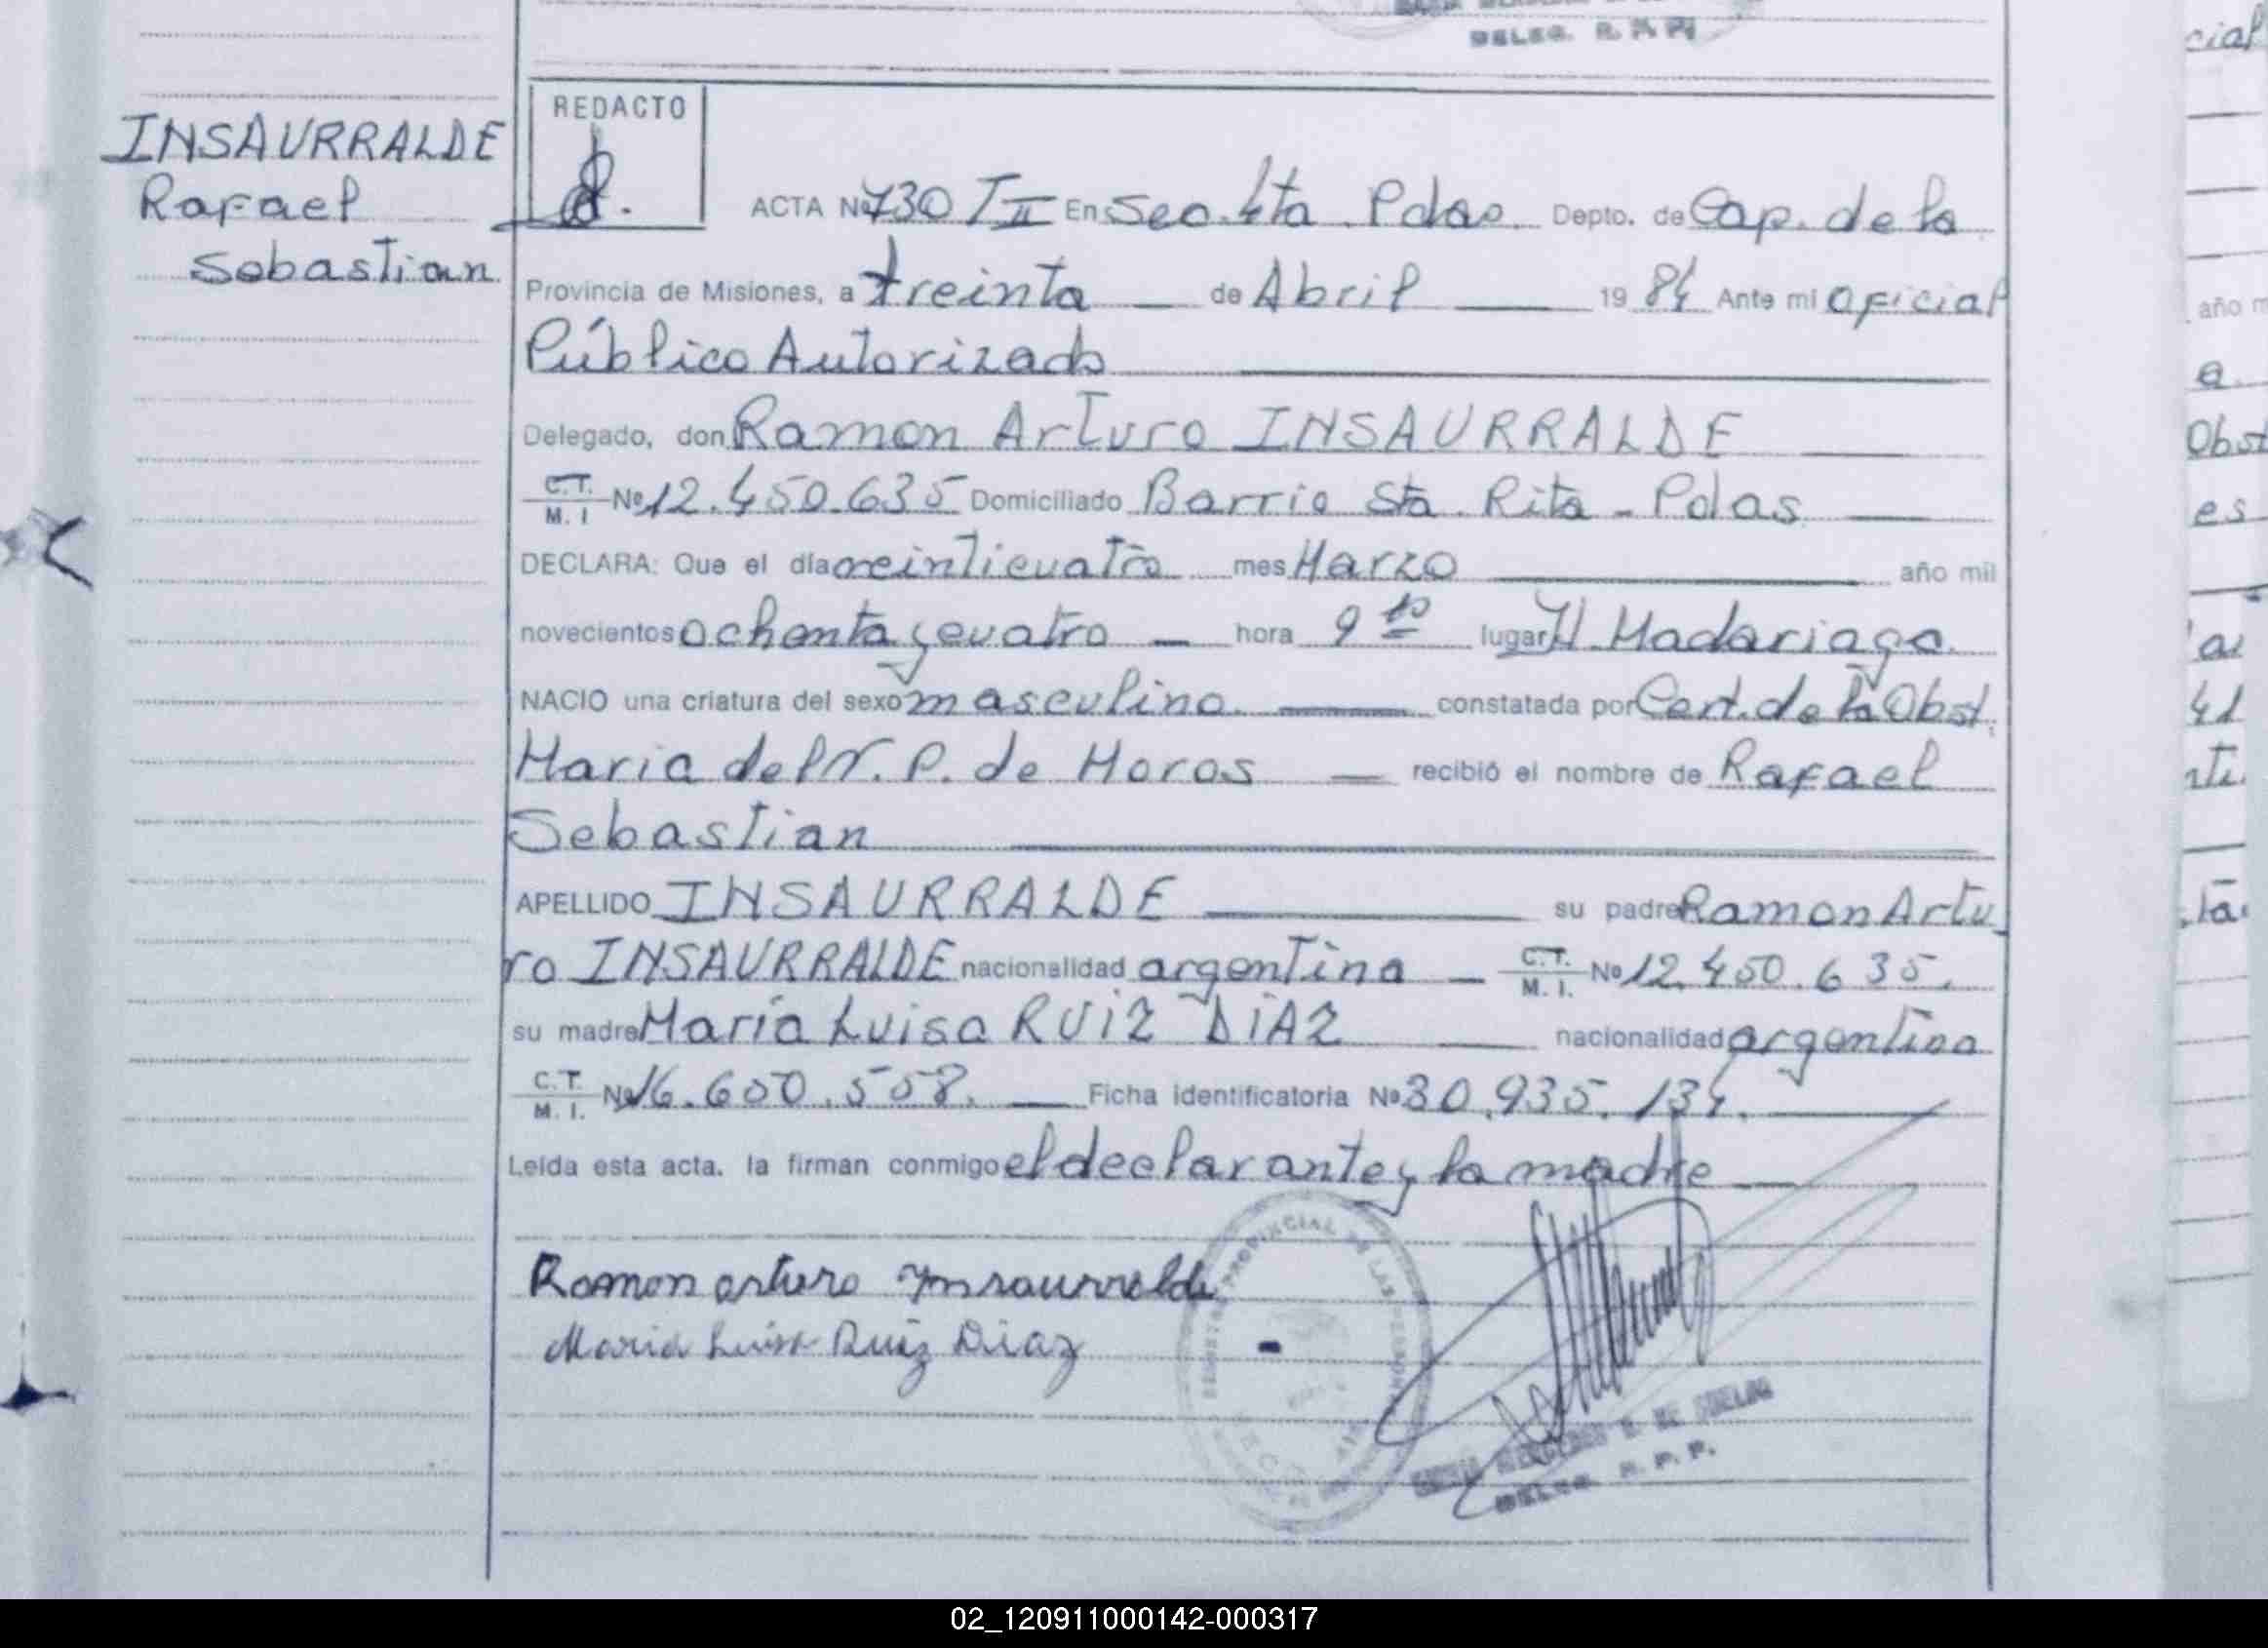 DELEG. R. P. P.
cial
REDACTO
INSAURRALDE
Rafael
Sebastian
ACTA Nº 730 T II En Sec. 4ta Pdas. Depto. de Cap. de la
Provincia de Misiones, a treinta de Abril 1984 Ante mi Oficial
Público Autorizado
Delegado, don Ramon Arturo INSAURRALDE
C.T. M. I Nº 12.450.635 Domiciliado Barrio Sta. Rita - Pdas
DECLARA: Que el día veinticuatro mes Marzo año mil
novecientos ochenta y cuatro hora 9 lugar H. Madariaga
NACIO una criatura del sexo masculino. constatada por Cert. de la Obst.
Maria del N. P. de Moros recibió el nombre de Rafael
Sebastian
APELLIDO INSAURRALDE su padre Ramon Artu
ro INSAURRALDE nacionalidad argentina C.T. M. I. Nº 12.450.635.
su madre María Luisa RUIZ DIAZ nacionalidad argentina
C.T. M. I. Nº 16.600.558. Ficha identificatoria Nº 30.935.134.
Leída esta acta. la firman conmigo el declarante y la madre
Ramon arturo Ynsaurralde
Maria Luisa Ruiz Diaz
PROVINCIAL DE LAS PERSONAS
DELEG. R. P. P.
año m
a
Obst
es
02_120911000142-000317